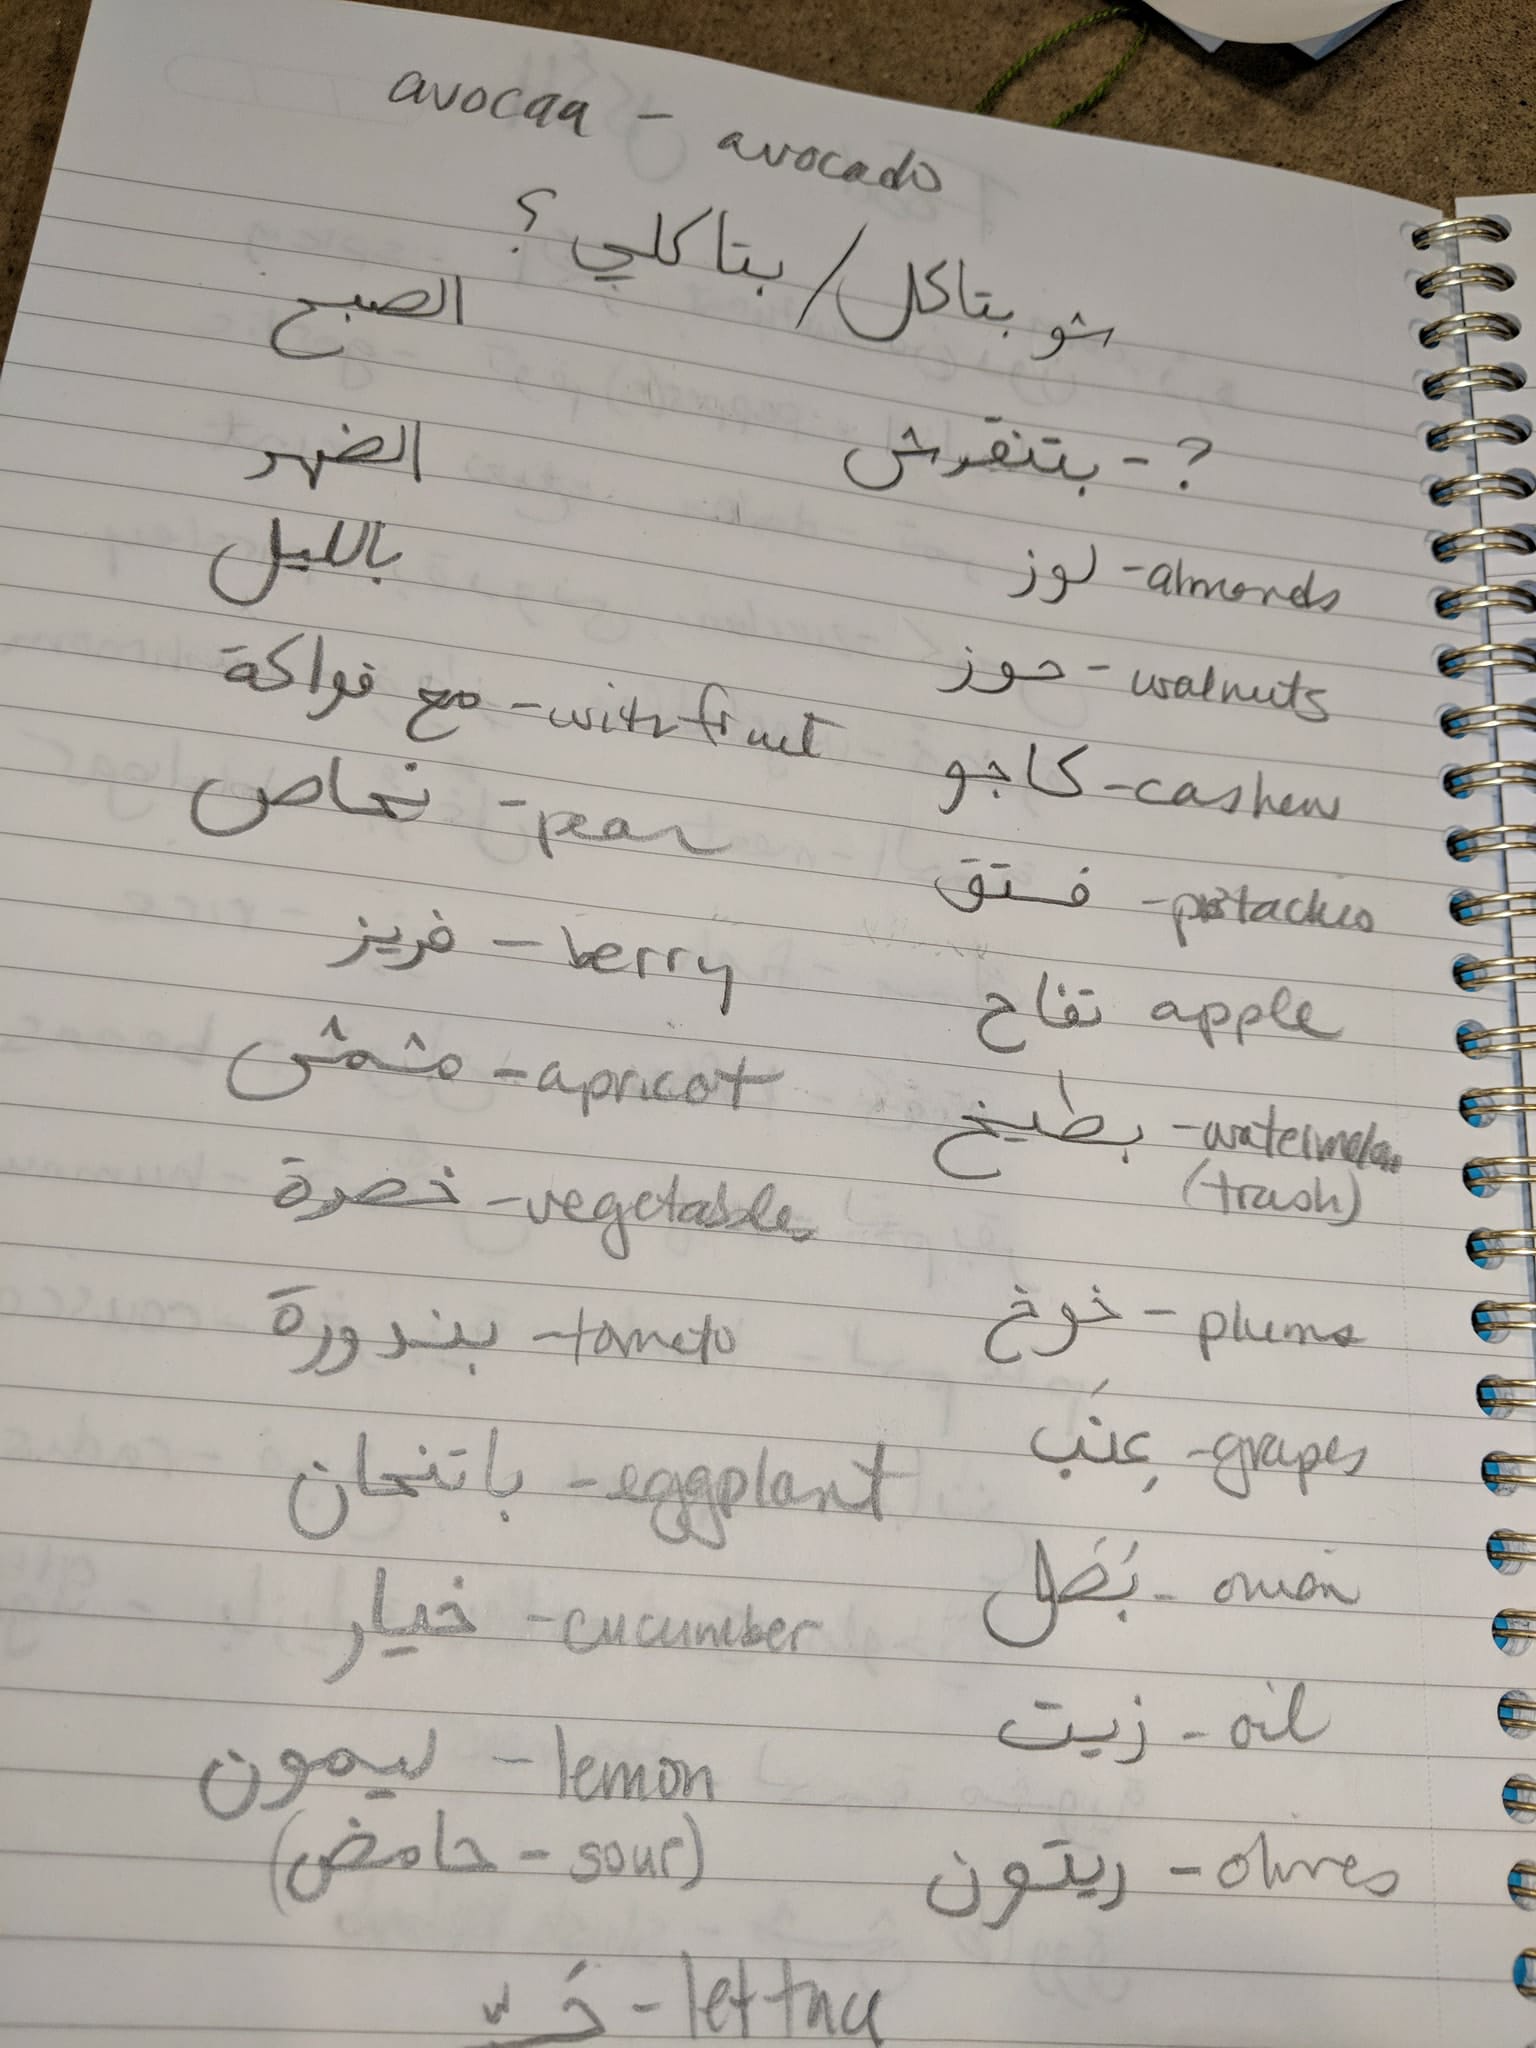 avocaa - avocado
شو بتاكل / بتاكلي ؟
الصبح
الضهر
بالليل
مع فواكة - with fruit
نحاص - pear
فريز - berry
مشمش - apricot
خصرة - vegetables
بندورة - tomato
باتنحان - eggplant
خيار - cucumber
ليمون - lemon
(حامض - sour)
- lettuce
بتنقرش - ?
لوز - almonds
حوز - walnuts
كاجو - cashew
فستق - pistachio
تفاح apple
بطيخ - watermelon
(trash)
خوخ - plums
عِنَب - grapes
بَصَل - onion
زيت - oil
ريتون - olives